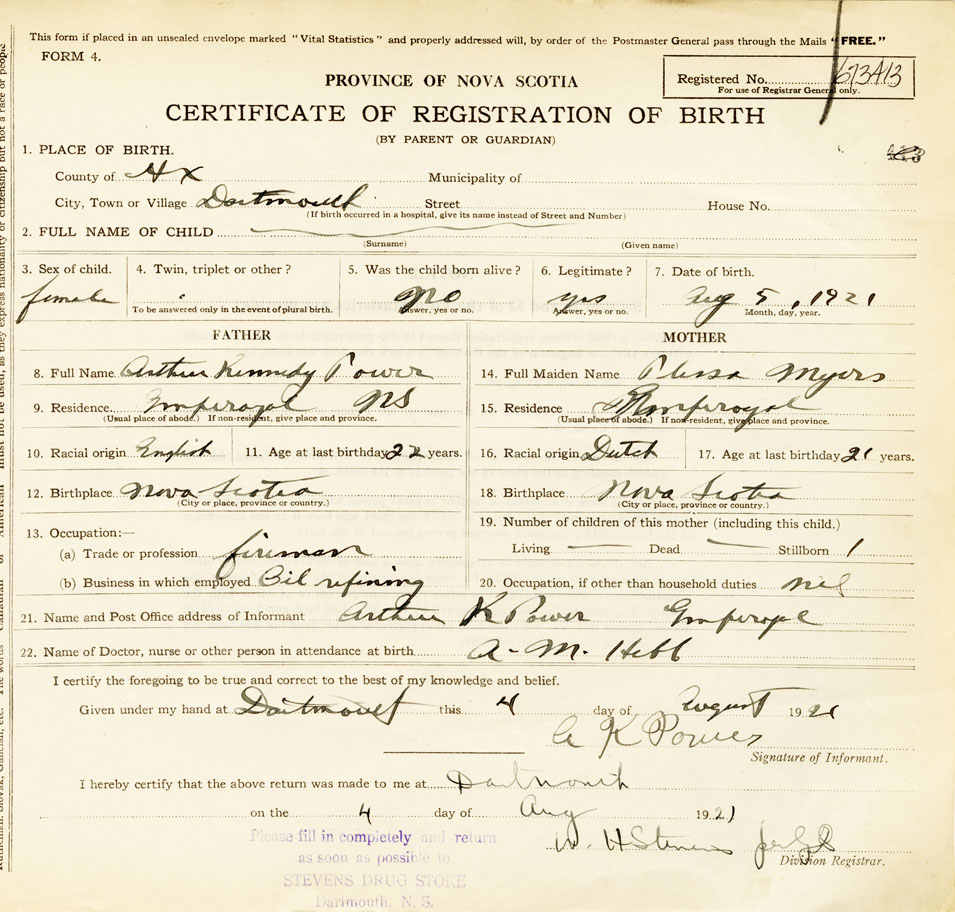 This form if placed in an unsealed envelope marked "Vital Statistics" and properly addressed will, by order of the Postmaster General pass through the Mails "FREE."
FORM 4.
PROVINCE OF NOVA SCOTIA
Registered No.
For use of Registrar General only.
CERTIFICATE OF REGISTRATION OF BIRTH
(BY PARENT OR GUARDIAN)
1. PLACE OF BIRTH.
County of Hx Municipality of
City, Town or Village Dartmouth Street House No.
(If birth occurred in a hospital, give its name instead of Street and Number)
2. FULL NAME OF CHILD
(Surname) (Given name)
3. Sex of child. 4. Twin, triplet or other? 5. Was the child born alive? 6. Legitimate? 7. Date of birth.
female no yes Aug 5, 1921
To be answered only in the event of plural birth. Answer, yes or no. Answer, yes or no. Month, day, year.
FATHER MOTHER
8. Full Name Arthur Kennedy Power 14. Full Maiden Name Myers
9. Residence Imperoyal NS 15. Residence Imperoyal
(Usual place of abode.) If non-resident, give place and province. (Usual place of abode.) If non-resident, give place and province.
10. Racial origin English 11. Age at last birthday 22 years. 16. Racial origin Dutch 17. Age at last birthday 21 years.
12. Birthplace Nova Scotia 18. Birthplace Nova Scotia
(City or place, province or country.) (City or place, province or country.)
13. Occupation:— 19. Number of children of this mother (including this child.)
(a) Trade or profession fireman Living — Dead — Stillborn 1
(b) Business in which employed Oil refining 20. Occupation, if other than household duties nil
21. Name and Post Office address of Informant Arthur K Power Imperoyal
22. Name of Doctor, nurse or other person in attendance at birth A. M. Hebb
I certify the foregoing to be true and correct to the best of my knowledge and belief.
Given under my hand at Dartmouth this 4 day of August 1921
A K Power
Signature of Informant.
I hereby certify that the above return was made to me at Dartmouth
on the 4 day of Aug 1921
W. H Stevens
Division Registrar.
Please fill in completely and return
as soon as possible to
STEVENS DRUG STORE
Dartmouth, N. S.